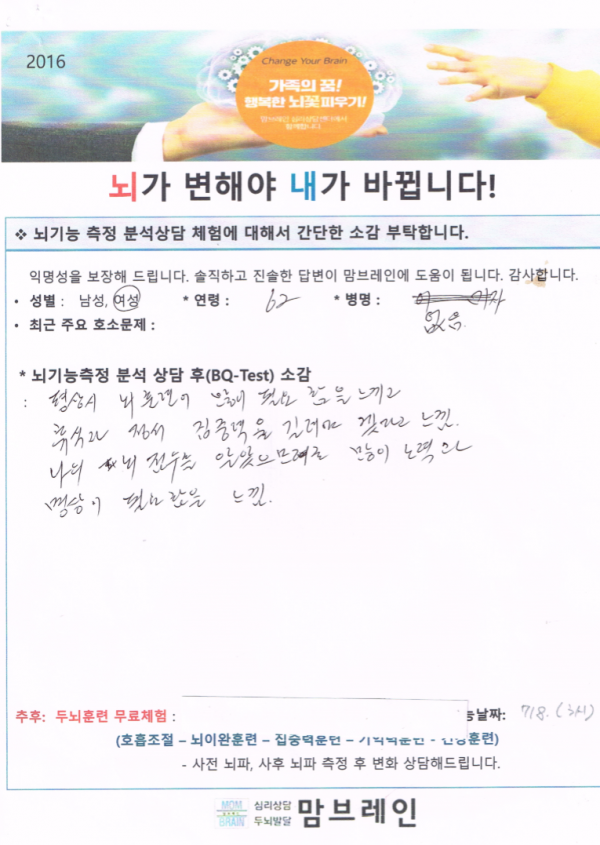 2016
Change Your Brain
가족의 꿈!
행복한 뇌꽃피우기!
맘브레인 심리상담센터에서
함께합니다.
뇌가 변해야 내가 바뀝니다!
❖ 뇌기능 측정 분석상담 체험에 대해서 간단한 소감 부탁합니다.
익명성을 보장해 드립니다. 솔직하고 진솔한 답변이 맘브레인에 도움이 됩니다. 감사합니다.
• 성별 : 남성, 여성 * 연령 : 62 * 병명 :
없음.
• 최근 주요 호소문제 :
* 뇌기능측정 분석 상담 후(BQ-Test) 소감
: 평상시 뇌 훈련이 필요 함을 느끼고
휴식과 정서 집중력을 길러야 겠다고 느낌.
나의 뇌 전두를 알았으므로 많이 노력과
명상이 필요함을 느낌.
추후: 두뇌훈련 무료체험 : 능날짜: 7/8. (3시)
(호흡조절 – 뇌이완훈련 – 집중력훈련 – 기억력훈련 - 훈련)
- 사전 뇌파, 사후 뇌파 측정 후 변화 상담해드립니다.
MOM
BRAIN
심리상담
두뇌발달
맘브레인